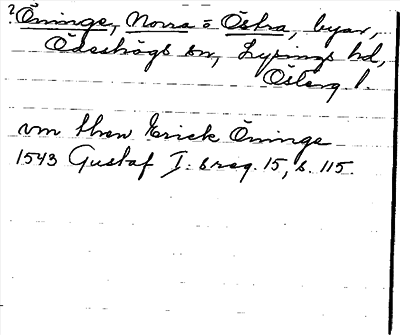 ? Öninge, Norra o Östra, byar,
Ödeshögs sn, Lysings hd,
Österg l.
vm then Erick Öninge
1543 Gustaf I:s reg. 15, s. 115.